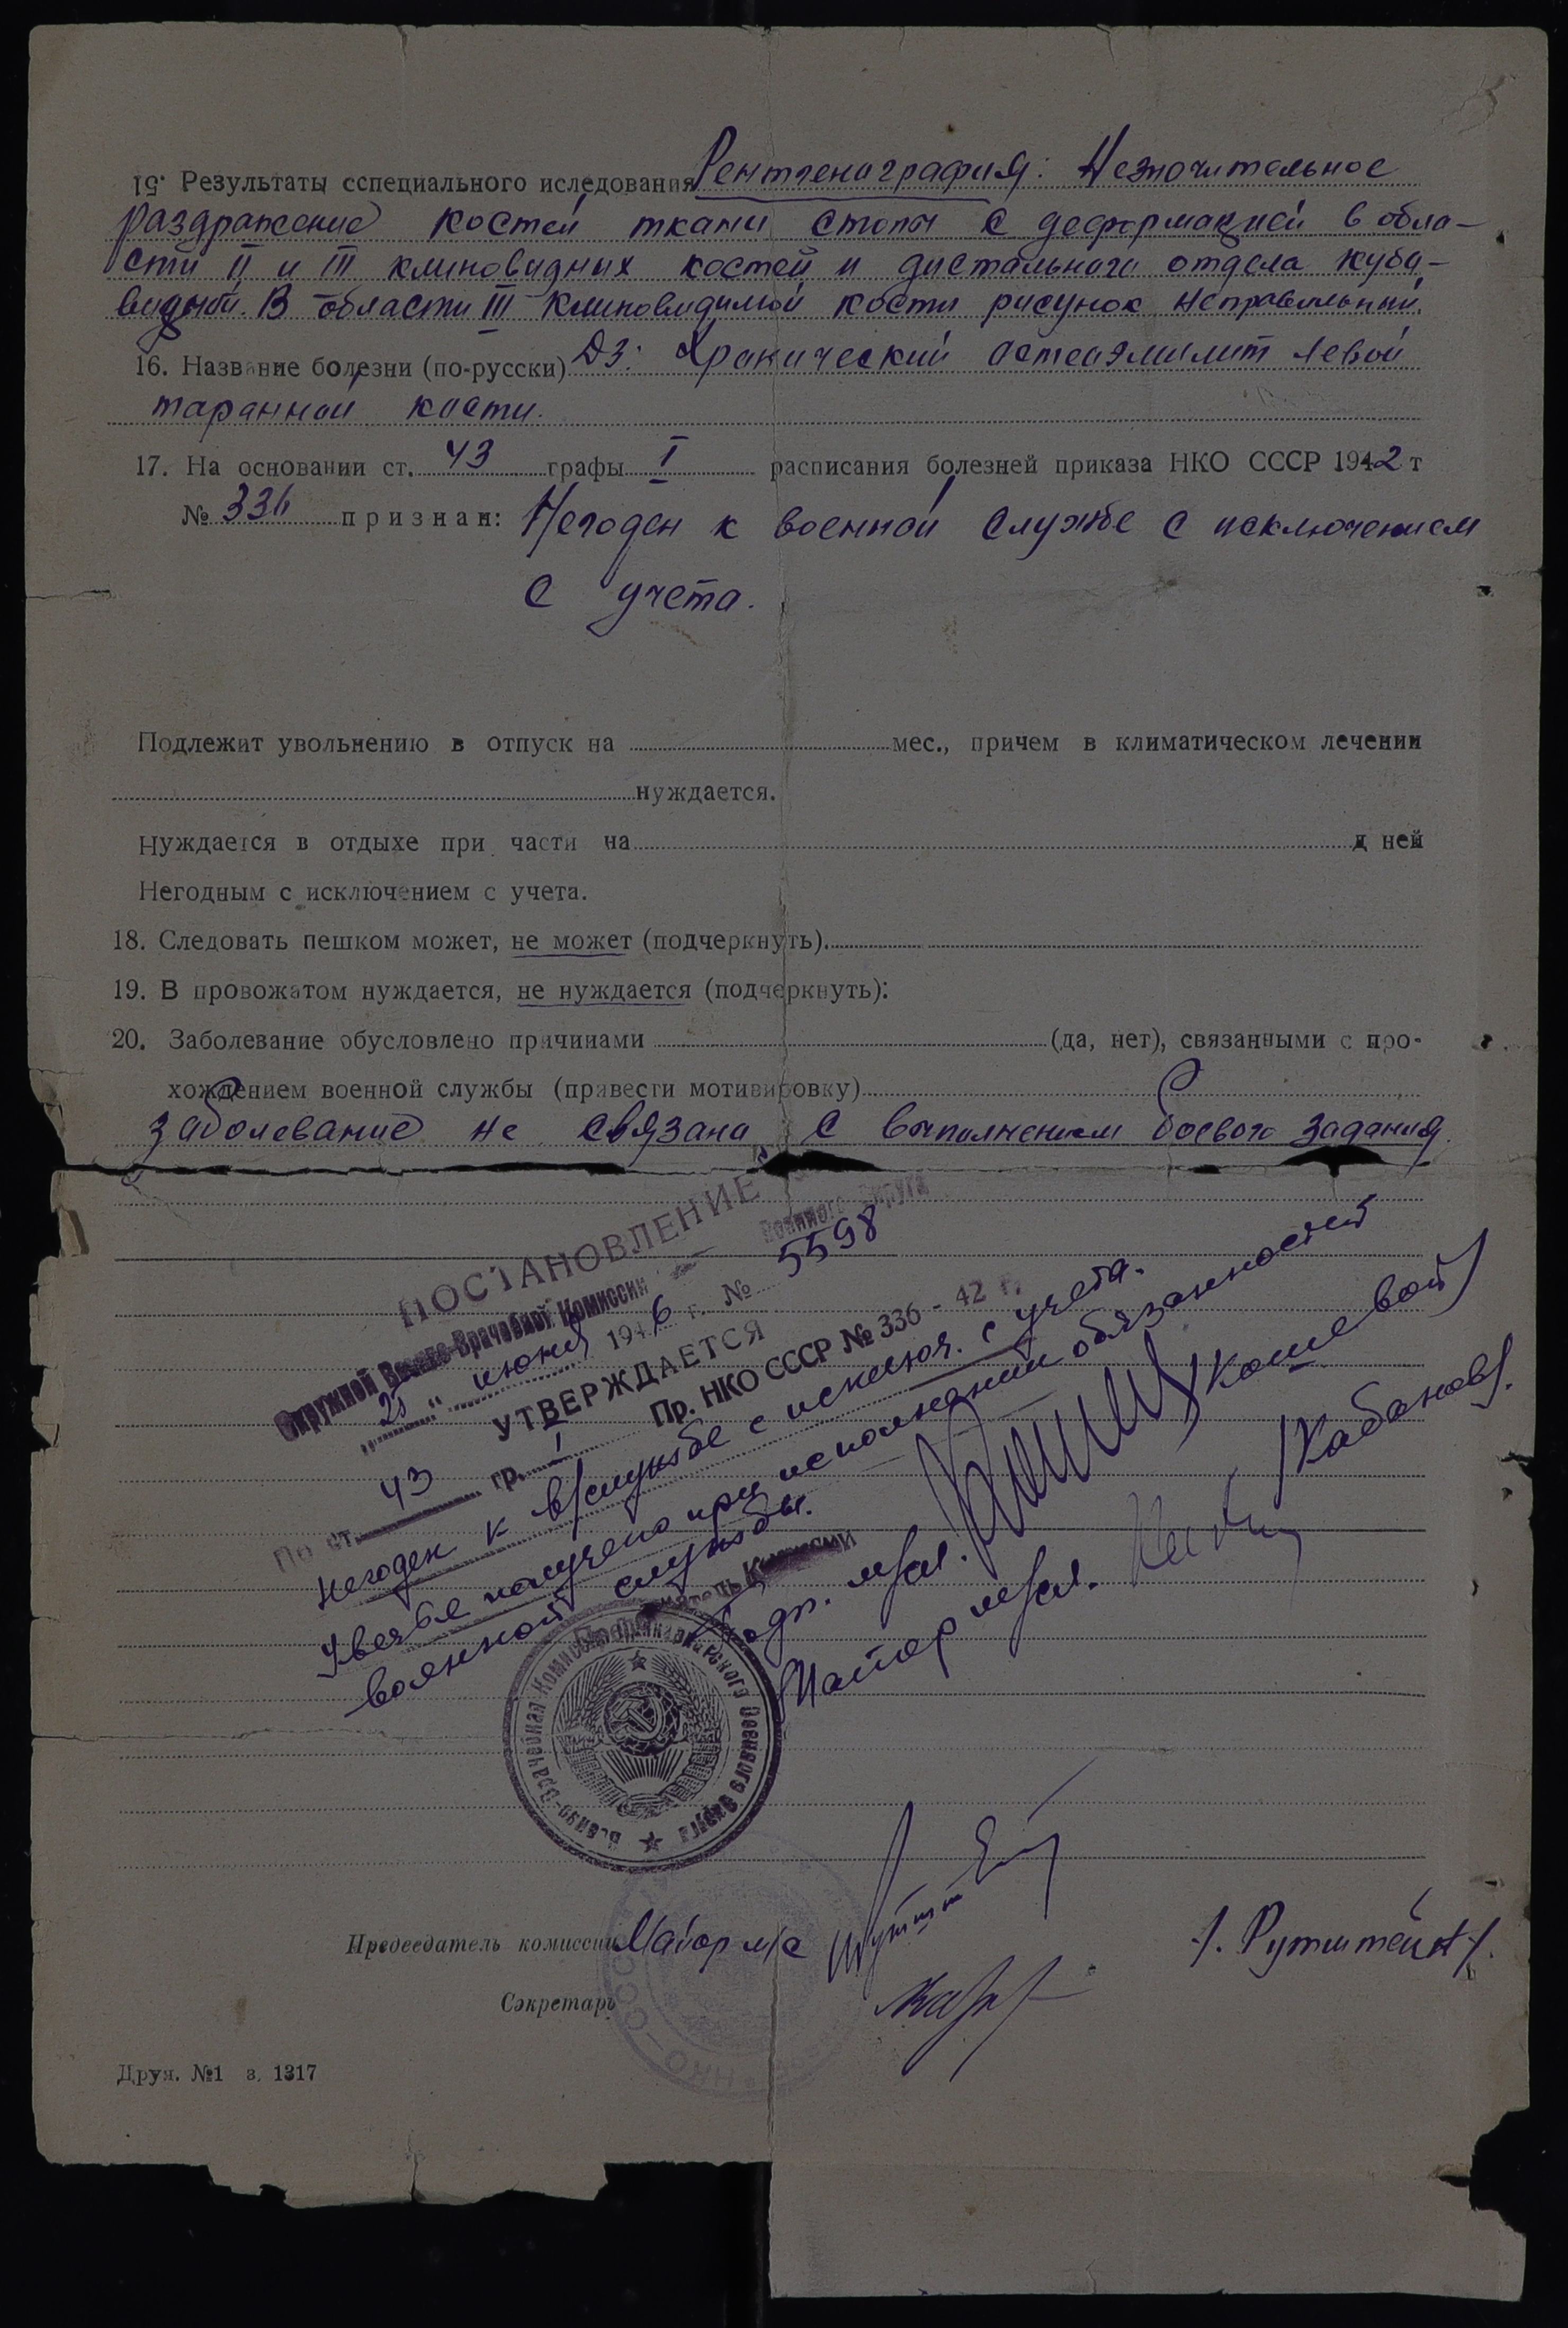 15. Результаты сспециального иследования Рентгенография: Незночительное
раздражение костей ткани стопы с деформацией в обла-
сти II и III клиновидных костей и дистального отдела куба-
видной. В области III клиновидмой кости рисунок неправильный.
16. Название болезни (по-русски) Дз: Хронический остеоэмилит левой
таранной кости.
17. На основании ст. 43 графы I расписания болезней приказа НКО СССР 1942 т
№ 336 признан: Негоден к военной службе с исключением
с учета.
Подлежит увольнению в отпуск на мес., причем в климатическом лечении
нуждается.
Нуждается в отдыхе при части на д ней
Негодным с исключением с учета.
18. Следовать пешком может, не может (подчеркнуть).
19. В провожатом нуждается, не нуждается (подчеркнуть):
20. Заболевание обусловлено причинами (да, нет), связанными с про-
хождением военной службы (правести мотивировку)
Заболевание не связана с выполнением боевого задания.
ПОСТАНОВЛЕНИЕ
Окружной Военно-Врачебной Комиссии Военного Округа
„25“ июня 1946 г. № 5598
УТВЕРЖДАЕТСЯ
По ст. 43 гр. I Пр. НКО СССР № 336 - 42 г.
Негоден к в/службе с исключ. с учета.
Увечье получено при исполнении обязанностей
военной службы.
Председатель Комиссии
Подп. м/сл. /Кошевой/
Майор м/сл. /Кабанов/.
Военно-Врачебная Комиссия Военного Округа
Председатель комиссии Майор м/с /. Рутштейн /.
Секретарь
НКО СССР
Друн. №1 з. 1317